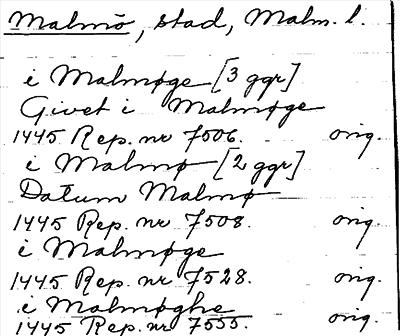 Malmö, stad, Malm. l.
i Malmøge [3 ggr]
Givet i Malmøge
1445 Rep. nr 7506. orig.
i Malmø [2 ggr]
Datum Malmø
1445 Rep. nr 7508. orig.
i Malmøge
1445 Rep. nr 7528. orig.
i Malmøghe
1445 Rep. nr 7555. orig.